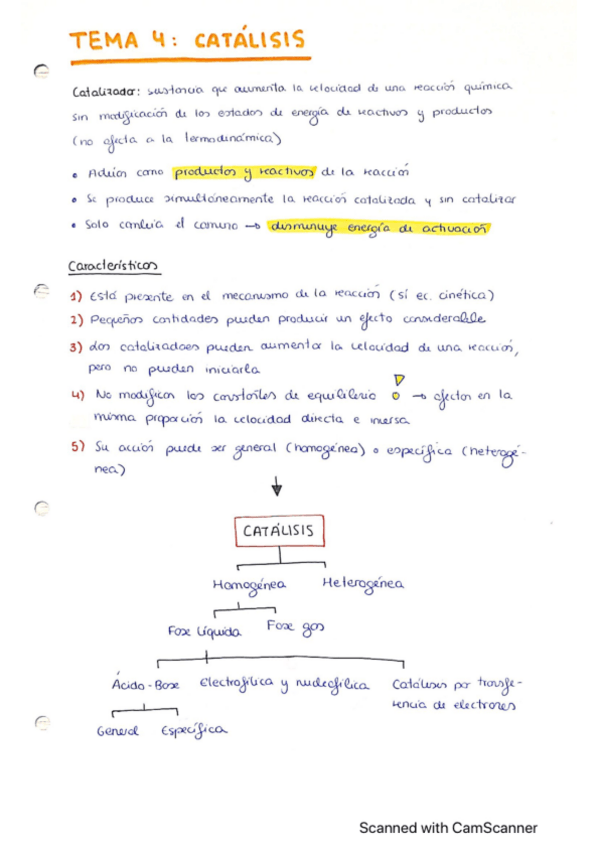 TEMA 4: CATÁLISIS
Catalizador: sustancia que aumenta la velocidad de una reacción química
sin modificación de los estados de energía de reactivos y productos
(no afecta a la termodinámica)
• Actúan como productos y reactivos de la reacción
• Se produce simultáneamente la reacción catalizada y sin catalizar
• Solo cambia el camino → disminuye energía de activación
Características
1) Está presente en el mecanismo de la reacción (sí ec. cinética)
2) Pequeñas cantidades pueden producir un efecto considerable
3) Los catalizadores pueden aumentar la velocidad de una reacción,
pero no pueden iniciarla
4) No modifican las constantes de equilibrio → afectan en la
misma proporción la velocidad directa e inversa
5) Su acción puede ser general (homogénea) o específica (heterogé-
nea)
CATÁLISIS
Homogénea Heterogénea
Fase líquida Fase gas
Ácido-Base Electrofílica y nucleofílica Catálisis por transfe-
rencia de electrones
General Específica
Scanned with CamScanner